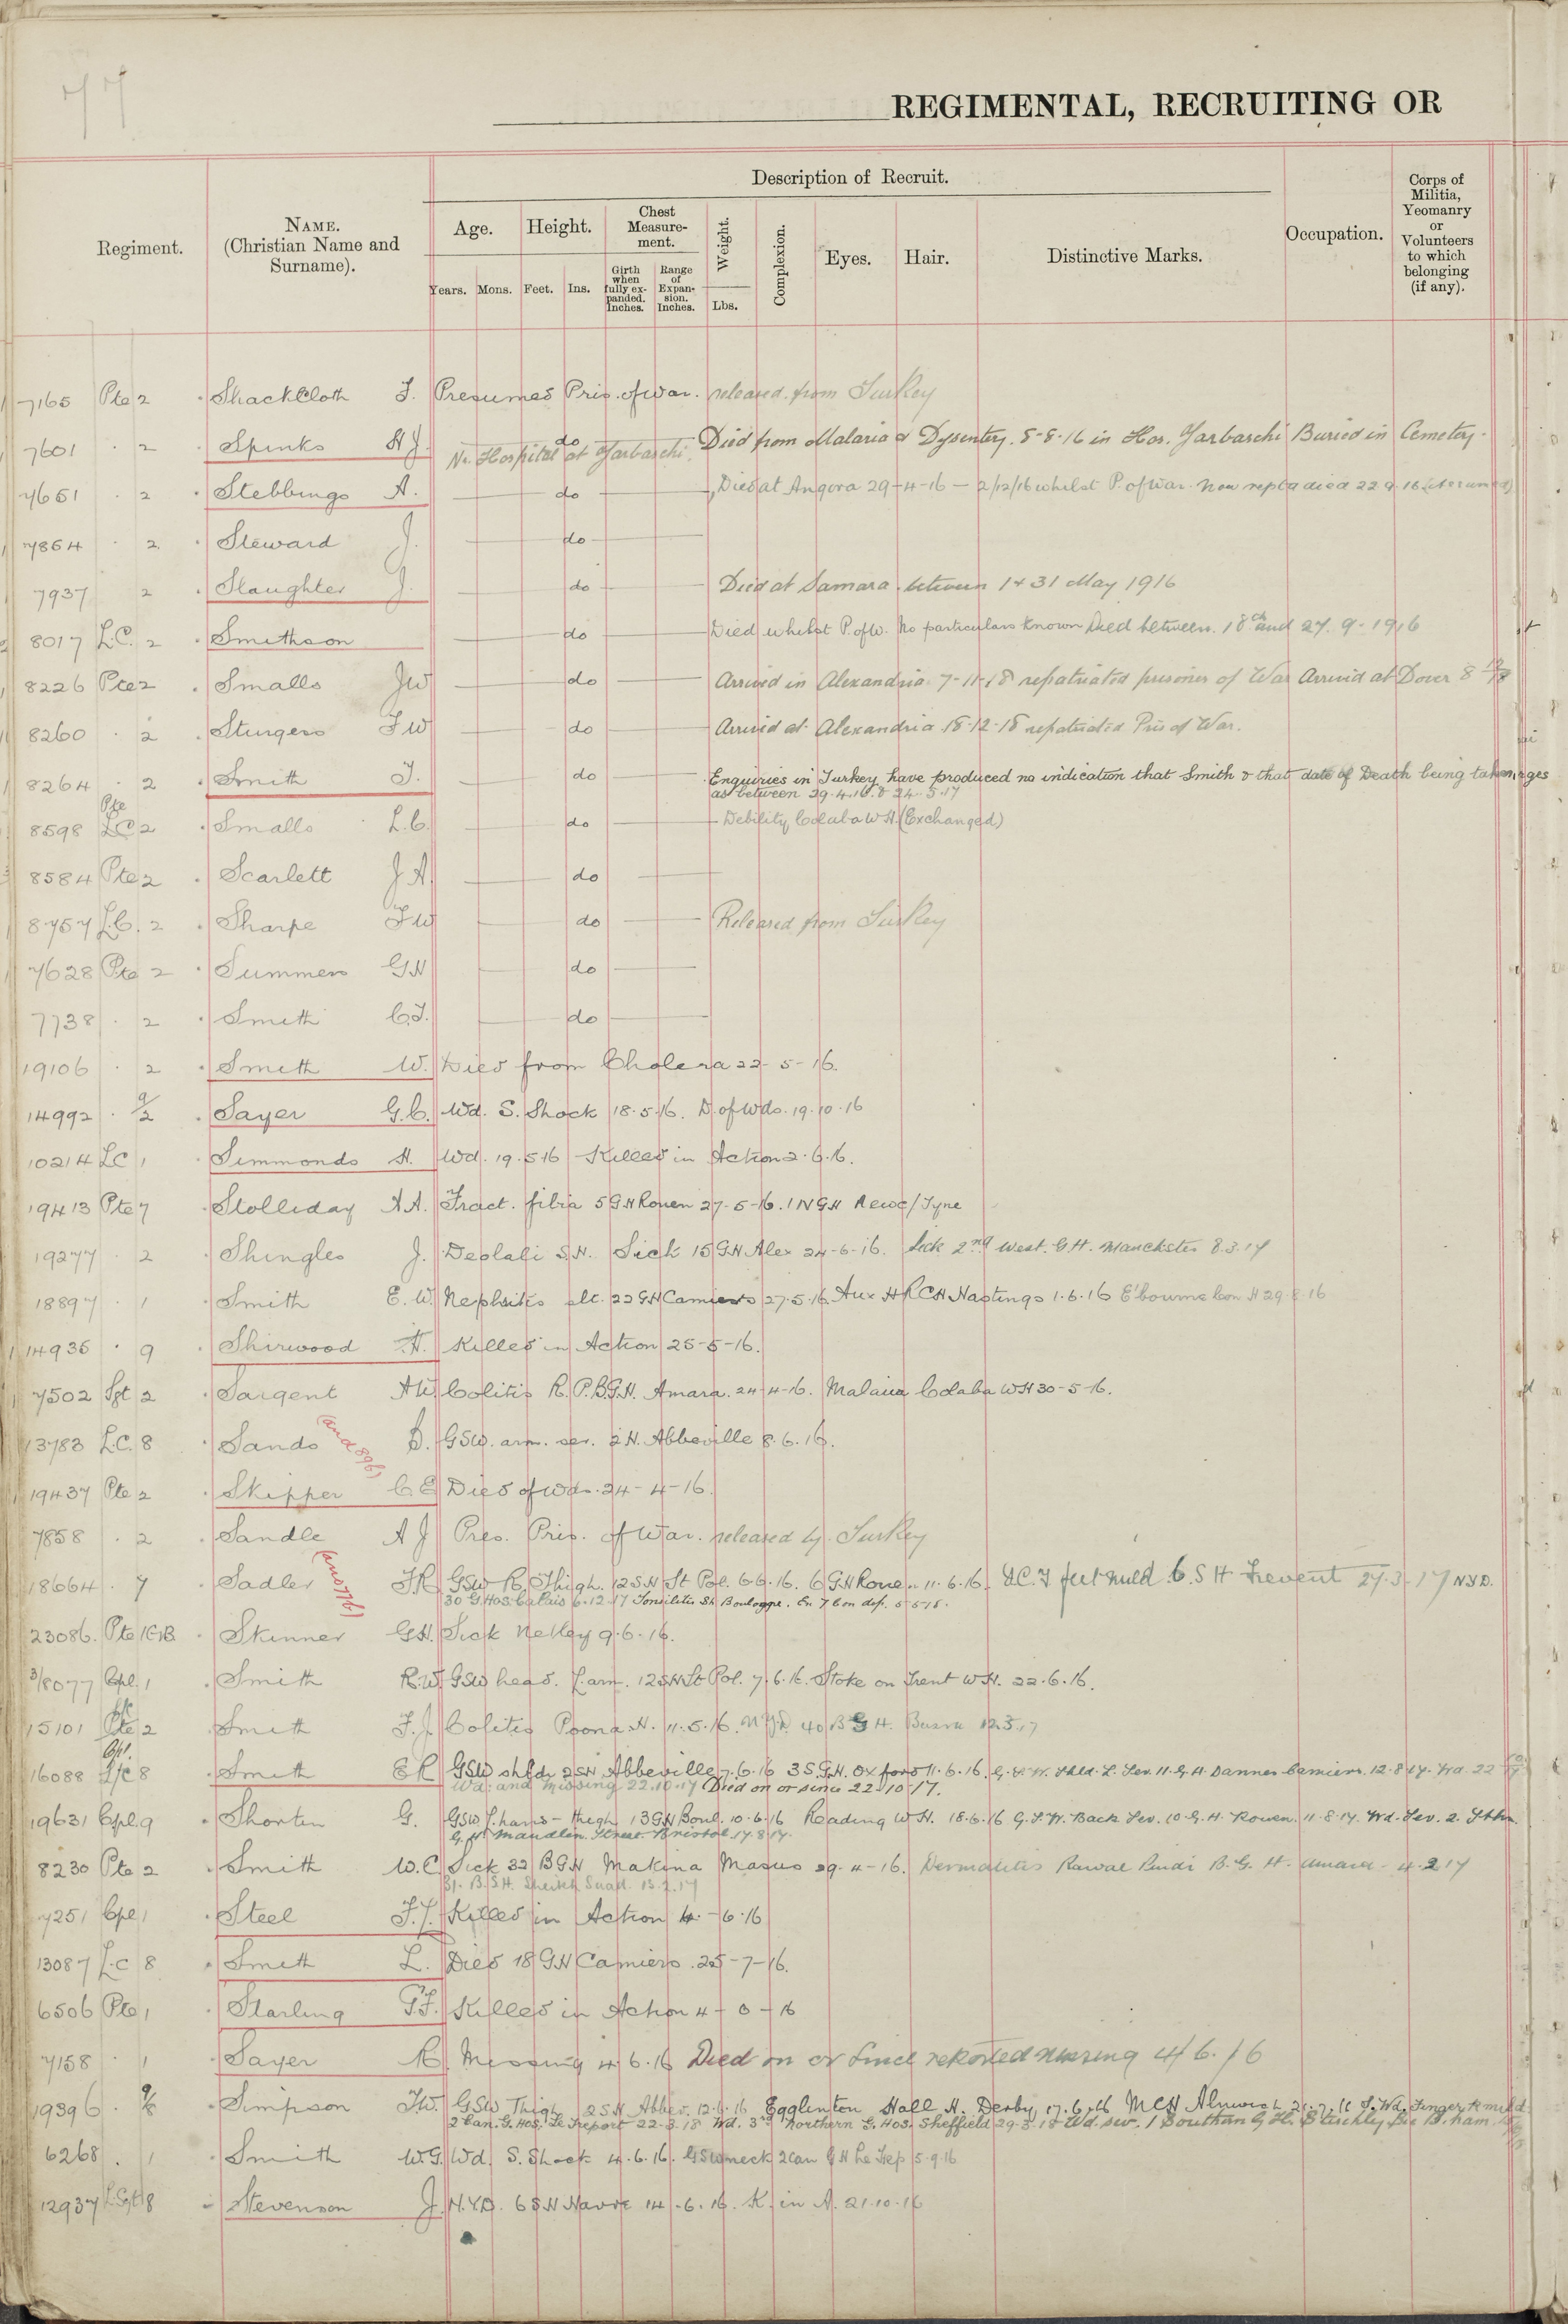 77
REGIMENTAL, RECRUITING OR
Description of Recruit.
Regiment.
NAME.
(Christian Name and
Surname).
Age.
Height.
Chest
Measure-
ment.
Weight.
Complexion.
Eyes.
Hair.
Distinctive Marks.
Occupation.
Corps of
Militia,
Yeomanry
or
Volunteers
to which
belonging
(if any).
Years.
Mons.
Feet.
Ins.
Girth
when
fully ex-
panded.
Inches.
Range
of
Expan-
sion.
Inches.
Lbs.
7165 Pte 2 Shackcloth F. Presumed Pris. of war. released from Turkey
7601 " 2 Spinks H J. do Died from Malaria & Dysentery. 8-8-16 in Hos. Yarbaschi Buried in Cemetery.
No. Hospital at Yarbaschi.
7651 " 2 Stebbings A. do Died at Angora 29-4-16 — 2/12/16 whilst P. of War. Now reptd died 22.9.16
7864 " 2 Steward J. do
7937 2 Slaughter J. do Died at Samara. between 1 & 31 May 1916
8017 L.C. 2 Smithson do Died whilst P. of W. No particulars known Died between. 18th and 27. 9. 1916
8226 Pte 2 Smalls J W do Arrived in Alexandria 7-11-18 repatriated prisoner of War Arrived at Dover 8
8260 " 2 Sturgess F W do Arrived at Alexandria 18-12-18 repatriated Pris of War.
8264 " 2 Smith T. do Enquiries in Turkey have produced no indication that Smith & that date of Death being taken
as between 29.4.16 & 24.5.17
Pte
8598 LC 2 Smalls L.C. do Debility Colaba W H. (Exchanged)
8584 Pte 2 Scarlett J A. do
8757 L.C. 2 Sharpe F W do Released from Turkey
7628 Pte 2 Summers G H do
7738 " 2 Smith C.J. do
19106 " 2 Smith W. Died from Cholera 22-5-16.
14992 " 9/2 Sayer G.C. Wd. S. Shock 18.5.16. D. of Wds. 19.10.16
10214 LC 1 Simmonds H. Wd. 19.5.16 Killed in Action 2.6.16.
19413 Pte 7 Stolliday A A. Fract. fibia 5 G H Rouen 27-5-16. 1 N G H Newc/Tyne
19277 " 2 Shingles J. Deolali S.H. Sick 15 G H Alex 24-6-16. Sick 2nd West. G.H. Manchester 8.3.17
18897 " 1 Smith E. W. Nephritis slt. 22 G H Camiers 27.5.16 Aux H R C H Hastings 1.6.16 E'bourne Con H 29.8.16
14935 " 9 Shirwood H. Killed in Action 25-5-16.
7502 Sgt 2 Sargent A W. Colitis R. P. B.G.H. Amara. 24-4-16. Malaria Colaba W H 30-5-16.
13783 L.C. 8 Sands (and 896) B. GSW. arm. sev. 2 H. Abbeville 8.6.16.
19437 Pte 2 Skipper C E Died of wds. 24-4-16.
7858 " 2 Sandle A J Pres. Pris. of War. released by Turkey
18664 " 7 Sadler (and 776) F R GSW R. Thigh. 12 S H St Pol. 6.6.16. 6 G H Rouen 11.6.16. I.C.T feet mild 6. S H Frevent 27.3.17 N.Y.D.
30 G. Hos. Calais 6.12.17 Tonsilitis Boulogne. En 7 Con dep. 5.5.18.
23086. Pte 1 G.B Skinner G H. Sick Netley 9.6.16.
3/8077 Cpl. 1 Smith R.W. GSW head. L. arm. 12 S H St Pol. 7.6.16. Stoke on Trent W H. 22.6.16.
15101 Pte 2 Smith F.J. Colitis Poona H. 11.5.16. N Y.D. 40 B G H. Busra 12.3.17
Cpl.
16088 L/C 8 Smith E R GSW shldr 2 S H Abbeville 7.6.16 3 S. G. H. Oxford 11.6.16. G. S. W. Shld. L. Sev. 11. G. H. Dannes Camiers. 12.8.17. Wd. 22
Wd. and missing 22.10.17 Died on or since 22.10.17.
19631 Cpl. 9 Shorten G. GSW L. hand — thigh 13 G H Boul. 10.6.16 Reading W H. 18.6.16 G. S. W. Back Sev. 10. G. H. Rouen. 11.8.17. Wd. Sev. 2. Sthn.
G. H. Maudlin Street Bristol 17.8.17.
8230 Pte 2 Smith W. C. Sick 32 B G H Makina Masus 29-4-16. Dermatitis Rawal Pindi B. G. H. Amara - 4.2.17
31. B. S. H. Sheikh Saad. 13.2.17
7251 Cpl 1 Steel F. J. Killed in Action 4-6-16
13087 L.C 8 Smith L. Died 18 G H Camiers. 25-7-16.
6506 Pte 1 Starling G F. Killed in Action 4-6-16
7158 " 1 Sayer R. Missing 4.6.16 Died on or since reported missing 4/6.16
19396 " 9/8 Simpson J.W. GSW Thigh 2 S H Abbev. 12.6.16 Egglinton Hall H. Derby 17.6.16 M C H Alnwick 21.7.16 S. Wd. Finger R mild.
2 Can. G. Hos. Le Treport 22-3-18 Wd. 3rd Northern G. Hos. Sheffield 29-3-18 Wd. sev. 1 Southern G. H. B.ham
6268 " 1 Smith W.G. Wd. S. Shock 4.6.16. GSW neck 2 Can G H Le Trep 5.9.16
12937 L. Sgt 8 Stevenson J. N.Y.D. 6 S H Havre 14.6.16. K. in A. 21.10.16